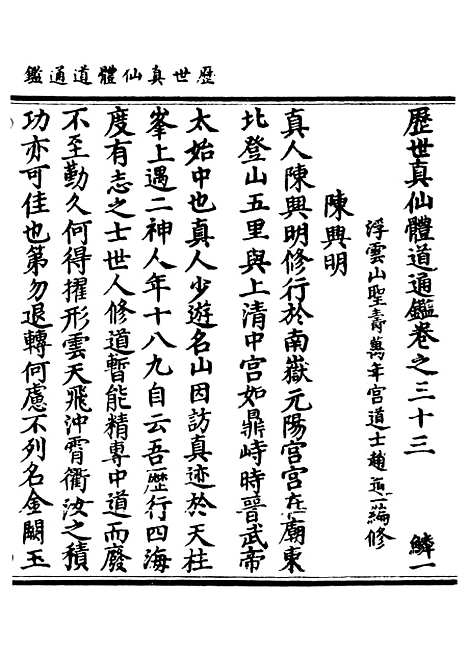 歷世真仙體道通鑑
歷世真仙體道通鑑卷之三十三 鱗一
浮雲山聖壽萬年宮道士趙道一編修
陳興明
真人陳興明修行於南嶽元陽宮宮在廟東
北登山五里與上清中宮如鼎峙時晉武帝
太始中也真人少遊名山因訪真迹於天柱
峯上遇二神人年十八九自云吾歷行四海
度有志之士世人修道暫能精專中道而廢
不至勤久何得擢形雲天飛沖霄衢汝之積
功亦可佳也第勿退轉何慮不列名金闕玉